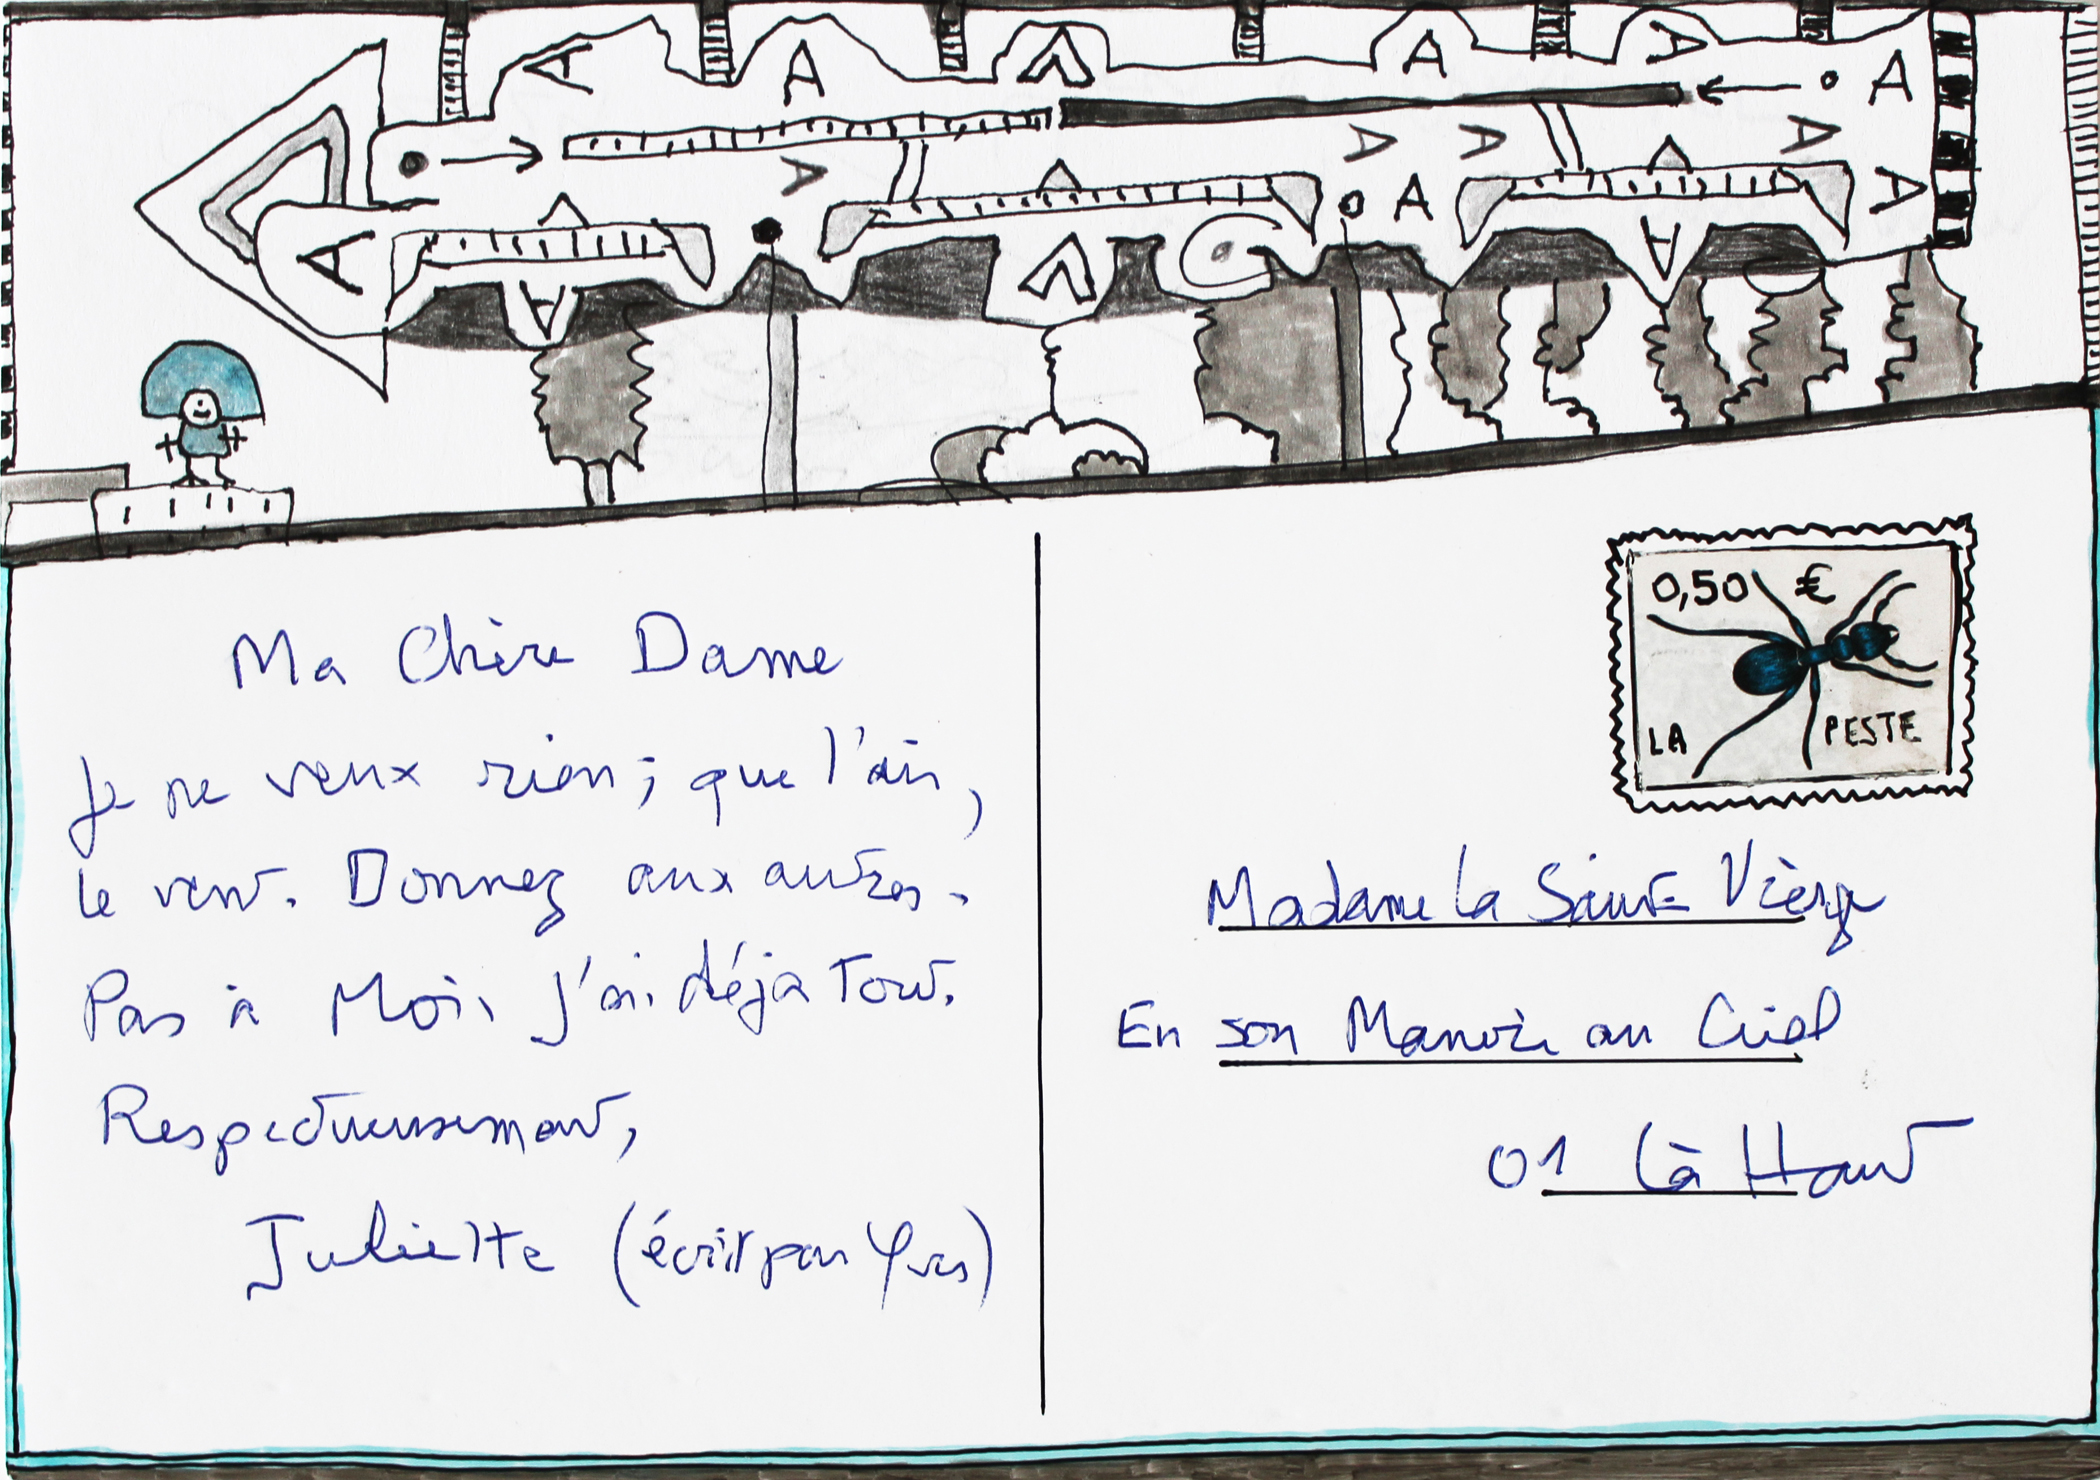 A A A A A A
A A A A A A
A A A A A A
0,50 €
LA PESTE
Ma Chère Dame
Je ne veux rien; que l'air,
le vent. Donnez aux autres.
Pas à Moi, J'ai déjà Tout.
Respectueusement,
Juliette (écrit par Yves)
Madame la Sainte Vièrge
En son Manoir au Ciel
01 Là Haut